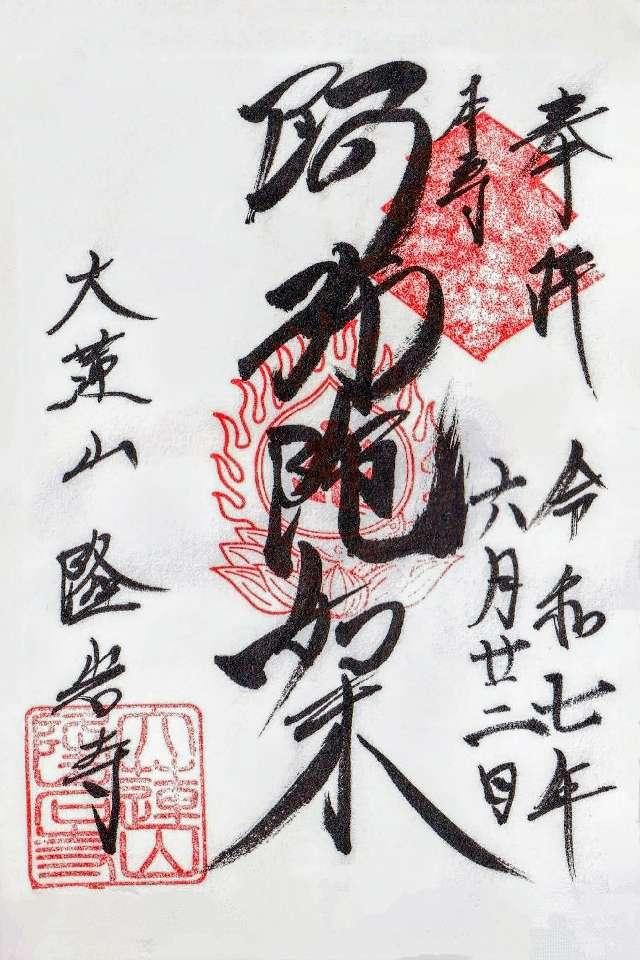 奉拝
本尊
令和七年
六月廿二日
阿弥陀如来
大蓮山 隆岩寺
大蓮山
隆岩寺